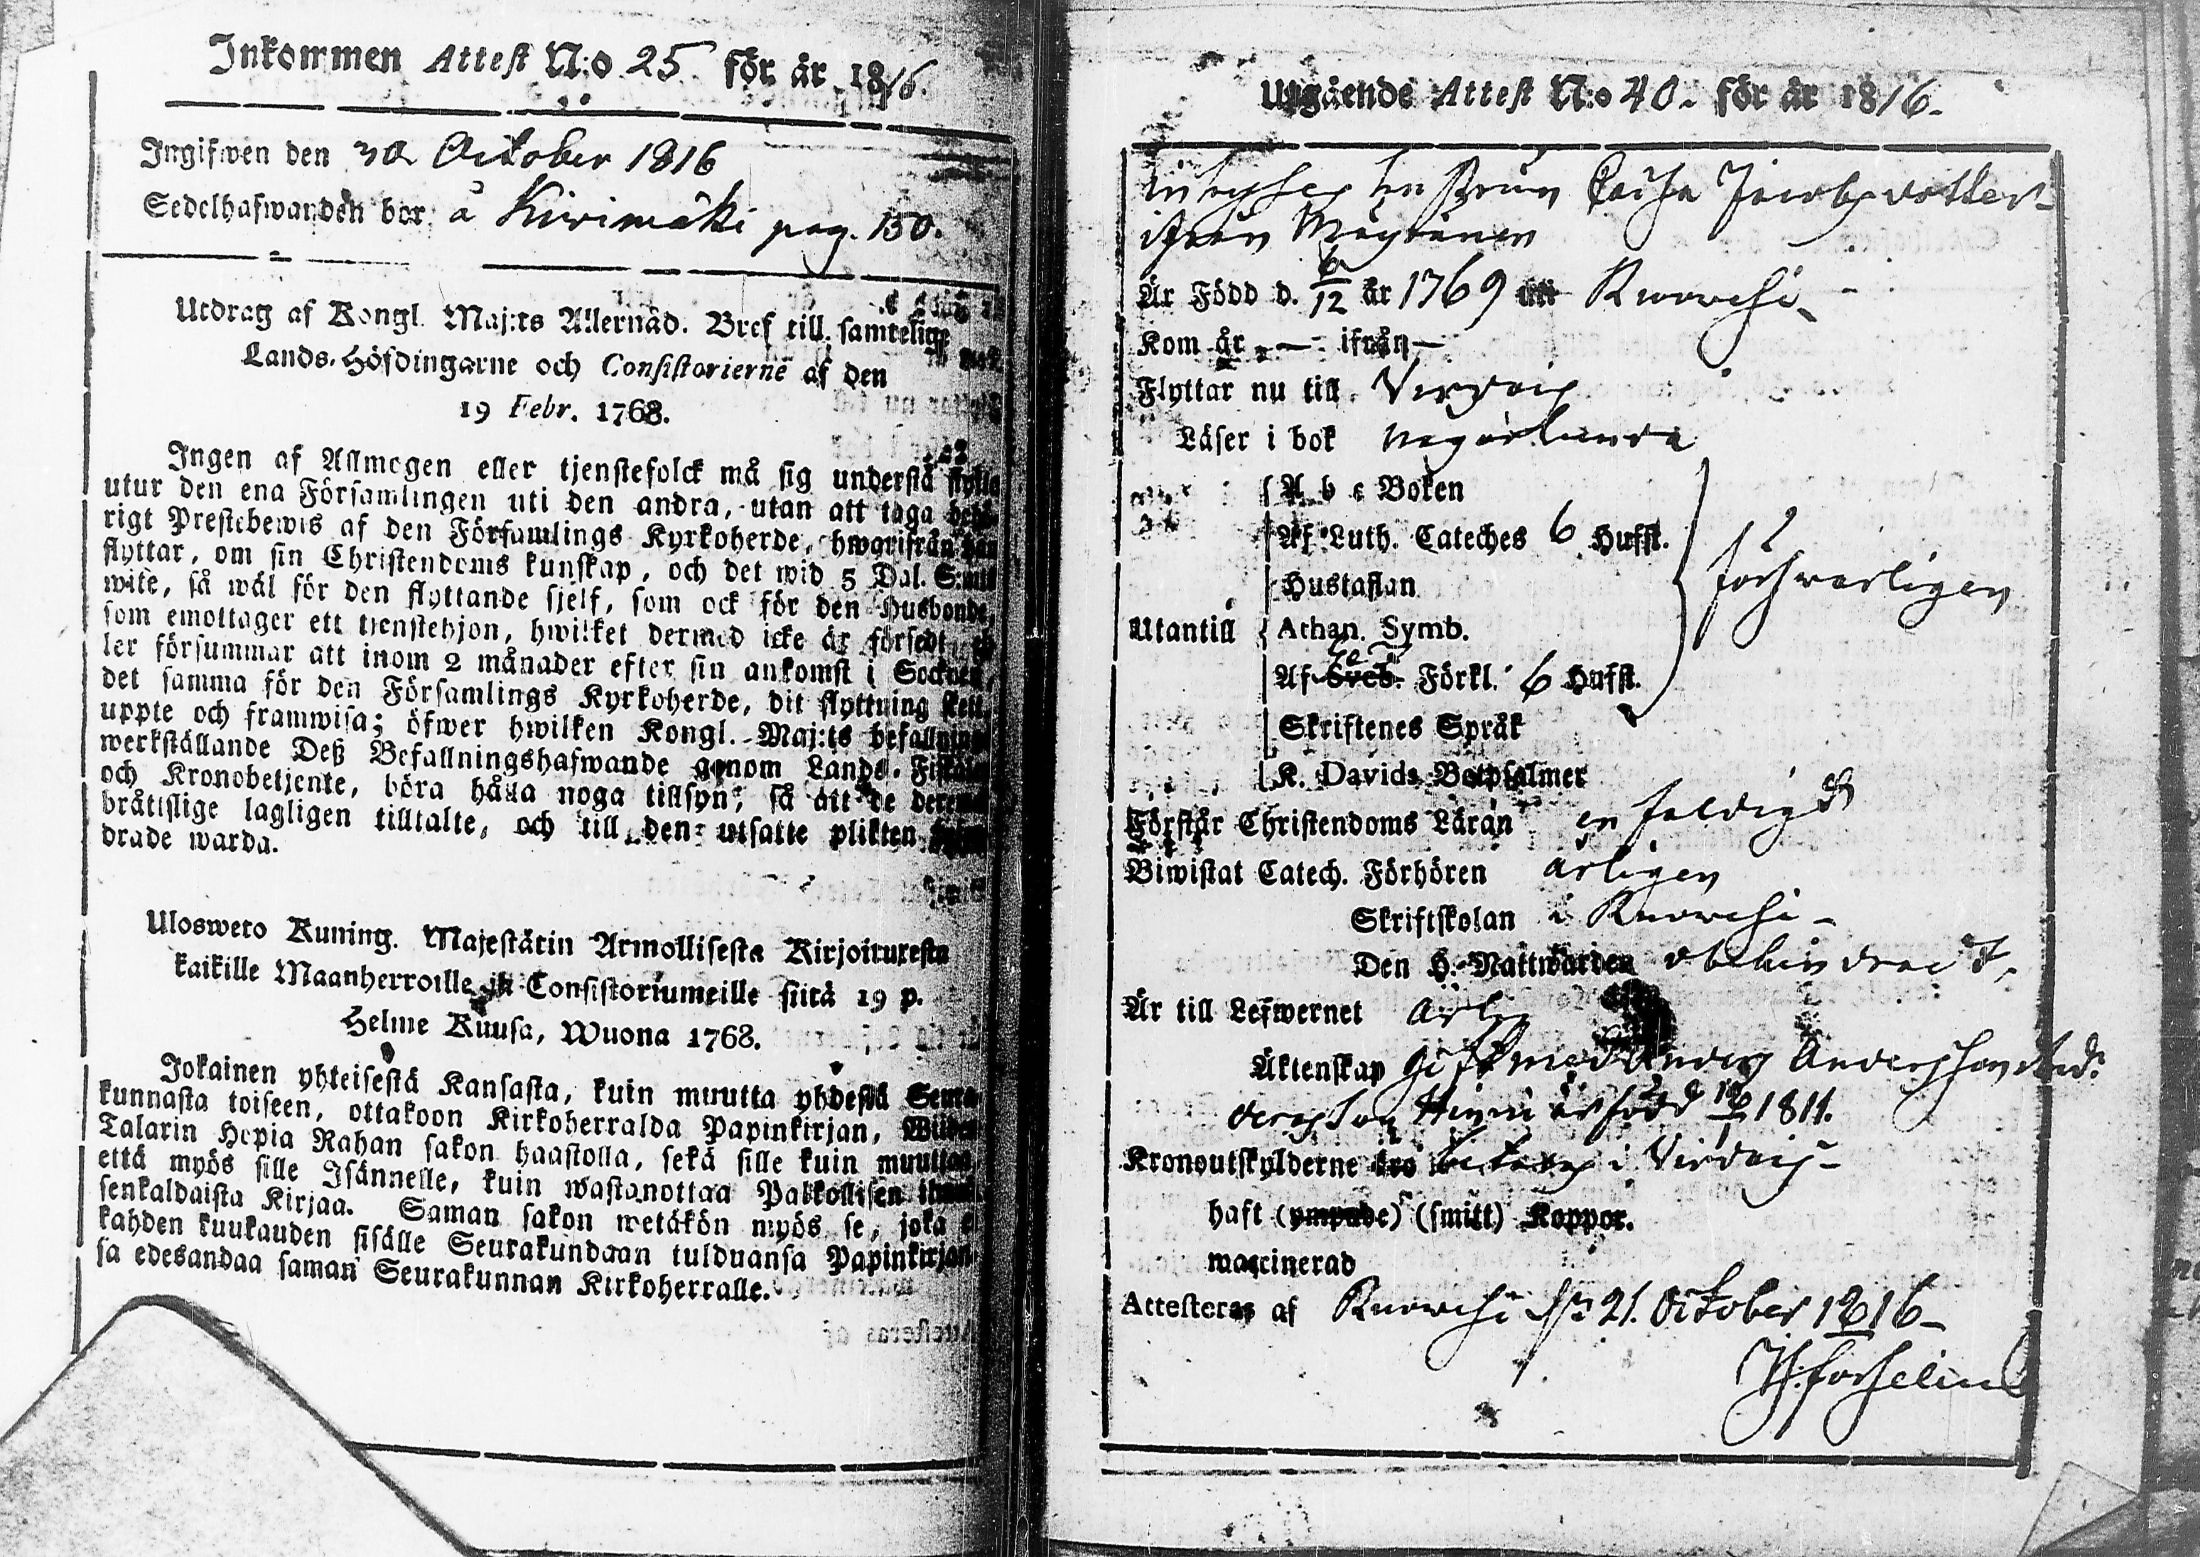 Inkommen Attest N:o 25 för år 1816.
Ingifwen den 30 October 1816
Sedelhafwanden bor å Kirimäki pag. 150.
Utdrag af Kongl. Maj:ts Allernåd. Bref till samtelige
Lands-Höfdingarne och Consistorierne af den
19 Febr. 1768.
Ingen af Allmogen eller tjenstefolck må sig understå flytta
utur den ena Församlingen uti den andra, utan att taga behö-
rigt Prestebewis af den Församlings Kyrkoherde, hwarifrån han
flyttar, om sin Christendoms kunskap, och det wid 5 Dal. S:mt
wite, så wäl för den flyttande sjelf, som ock för den Husbonde,
som emottager ett tjenstehjon, hwilket dermed icke är försedt, el-
ler försummar att inom 2 månader efter sin ankomst i Socknen,
det samma för den Församlings Kyrkoherde, dit flyttning skett,
uppte och framwisa; öfwer hwilken Kongl. Maj:ts befallning
werkställande Deß Befallningshafwande genom Lands-Fiskaler
och Kronobetjente, böra hålla noga tillsyn, så att de deremot
bråttslige lagligen tilltalte, och till den utsatte plikten
drade warda.
Ulosweto Kuning. Majestätin Armollisesta Kirjoituxesta
kaikille Maanherroille ja Consistoriumeille siitä 19 p.
Helme Kuusa, Wuona 1768.
Jokainen yhteisestä Kansasta, kuin muutta yhdestä Seura-
kunnasta toiseen, ottakoon Kirkoherralda Papinkirjan, Wiiden
Talarin Hopia Rahan sakon haastolla, sekä sille kuin muuttaa,
että myös sille Isännelle, kuin wastanottaa Palkollisen ilman
senkaldaista Kirjaa. Saman sakon wetäkön myös se, joka ei
kahden kuukauden sisälle Seurakundaan tulduansa Papinkirjan-
sa edesandaa saman Seurakunnan Kirkoherralle.
Utgående Attest N:o 40. för år 1816.
Caisa Jacobsdotter
ifrån
Är Född d. 6/12 år 1769 uti Ruovesi
Kom år — ifrån —
Flyttar nu till Virdois
Läser i bok någorlunda
A b c Boken
Af Luth. Cateches 6 Hufst.
Hustaflan
Utantill Athan. Symb. försvarligen
Af Sveb. Förkl. 6 Hufst.
Skriftenes Språk
K. Davids Botpsalmer
Förstår Christendoms Läran enfaldigt
Biwistat Catech. Förhören årligen
Skriftskolan i Ruovesi
Den H. Nattwarden obehindrad
Är till Lefwernet ärlig
Äktenskap gift med Anders Andersson
deras son är född 1811.
Kronoutskylderne äro betalas i Virdois
haft (ympade) (smitt) Koppor.
waccinerad
Attesteras af Ruovesi d. 21. October 1816
Forselius